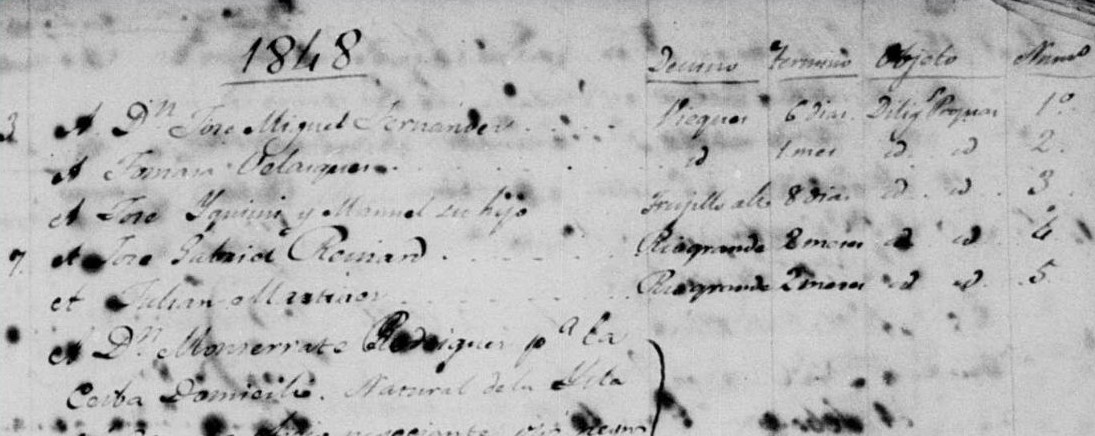 1848
Destino Termino Objeto Num.º
3 A Dⁿ Jose Miguel Fernandez Vieques 6 dias Dilig Propias 1º
A Tomasa Velasques id 1 mes id id 2
A Jose Yquini y Manuel su hijo Trujillo alto 8 dias id id 3
7 A Jose Gabriel Reinard Riogrande 2 meses id id 4
A Julian Martinez Riogrande 2 meses id id 5
A Dⁿ Monserrate Rodrigues pª la
Domicilio. Natural de la Ysla
negociante